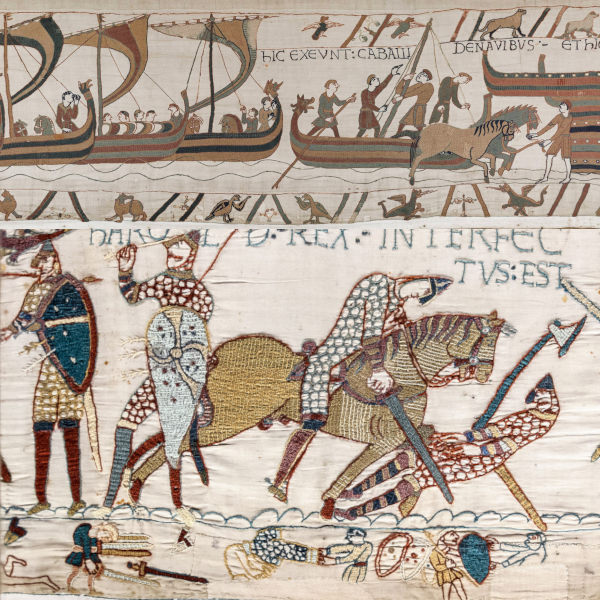 HIC EXEVNT: CABALLI DENAVIBVS :- ETHIC
HAROLD: REX:- INTERFEC
TVS: EST